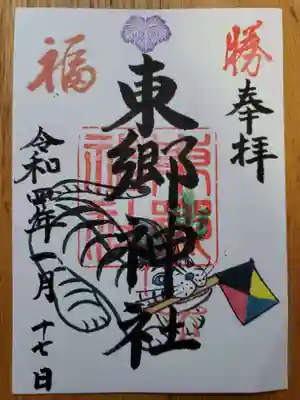 勝
奉拝
東郷神社
福
令和四年一月十七日